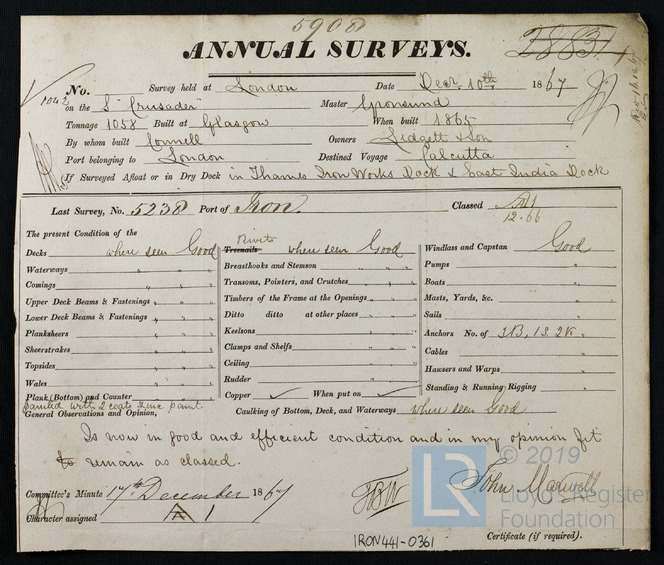 5908
ANNUAL SURVEYS. 2883
No. Survey held at London Date Decr. 10th 1867
1042 on the S "Crusader" Master
Tonnage 1058 Built at Glasgow When built 1865
By whom built Connell Owners Lidgett & Son
Port belonging to London Destined Voyage Calcutta
If Surveyed Afloat or in Dry Dock in Thames Iron Works Dock & East India Dock
Last Survey, No. 5238 Port of Iron. Classed A1
12.66
The present Condition of the
Decks where seen Good
Waterways " " "
Comings " " "
Upper Deck Beams & Fastenings " " "
Lower Deck Beams & Fastenings " " "
Planksheers " " "
Sheerstrakes " " "
Topsides " " "
Wales " " "
Plank (Bottom) and Counter
painted with 2 coats zinc paint
Rivets
Treenails where seen Good
Breasthooks and Stemson " " "
Transoms, Pointers, and Crutches " " "
Timbers of the Frame at the Openings " " "
Ditto ditto at other places " " "
Keelsons " " "
Clamps and Shelfs " " "
Ceiling " " "
Rudder " " "
Copper ✓ When put on ✓
Windlass and Capstan Good
Pumps "
Boats "
Masts, Yards, &c. "
Sails "
Anchors No. of 3B, 1S 2K "
Cables "
Hawsers and Warps "
Standing & Running Rigging "
General Observations and Opinion, Caulking of Bottom, Deck, and Waterways where seen Good
Is now in good and efficient condition and in my opinion fit
to remain as classed.
John Maxwell
Committee's Minute 17th December 1867
Character assigned A 1
Certificate (if required).
IRON441-0361
LR
© 2019
Lloyd's Register
Foundation